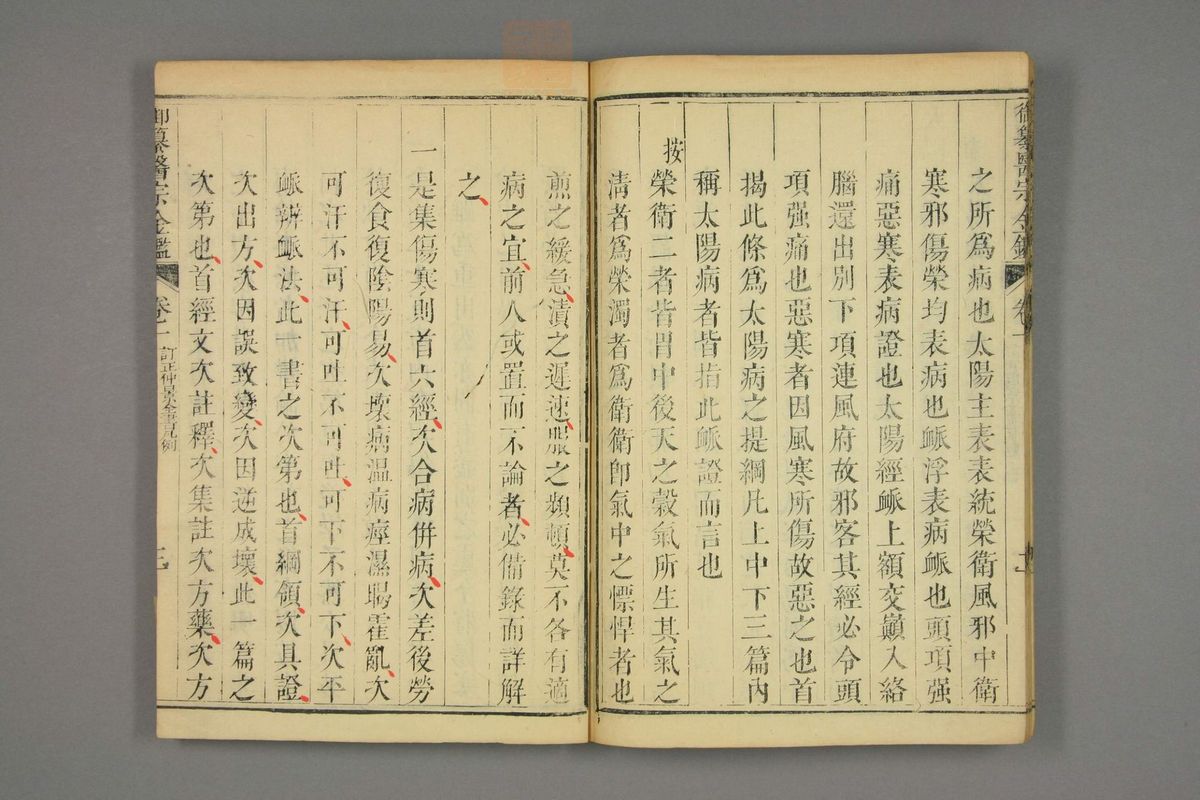 御纂醫宗金鑑
卷一
之所爲病也太陽主表表統榮衛風邪中衛
寒邪傷榮均表病也脈浮表病脈也頭項强
痛惡寒表病證也太陽經脈上額交巔入絡
腦還出別下項連風府故邪客其經必令頭
項强痛也惡寒者因風寒所傷故惡之也首
揭此條爲太陽病之提綱凡上中下三篇內
稱太陽病者皆指此脈證而言也
按榮衛二者皆胃中後天之穀氣所生其氣之
淸者爲榮濁者爲衛衛卽氣中之慓悍者也
煎之緩急漬之遲速服之頻頓莫不各有適
病之宜前人或置而不論者必備錄而詳解
之
一是集傷寒則首六經次合病併病次差後勞
復食復陰陽易次壞病温病痙濕暍霍亂次
可汗不可汗可吐不可吐可下不可下次平
脈辨脈法此一書之次第也首綱領次具證
次出方次因誤致變次因逆成壞此一篇之
次第也首經文次註釋次集註次方藥次方
御纂醫宗金鑑
卷一
訂正仲景全書凡例